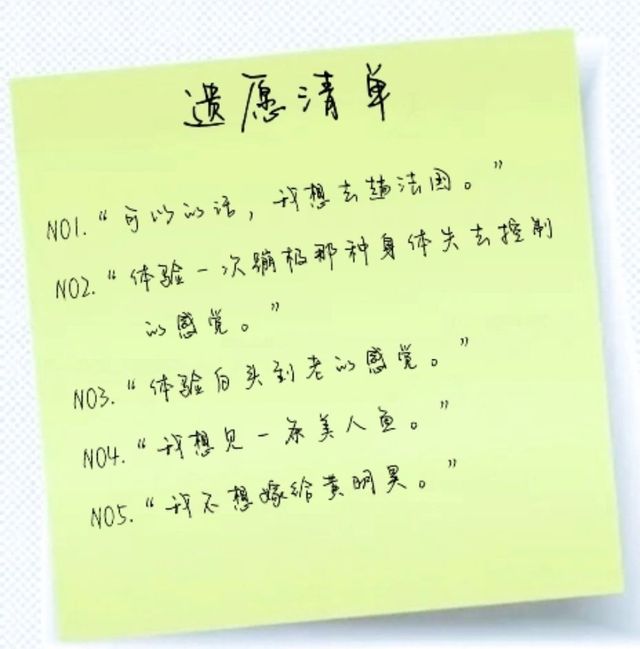 遗愿清单
NO1.“可以的话，我想去趟法国。”
NO2.“体验一次蹦极那种身体失去控制
的感觉。”
NO3.“体验白头到老的感觉。”
NO4.“我想见一条美人鱼。”
NO5.“我不想嫁给黄明昊。”